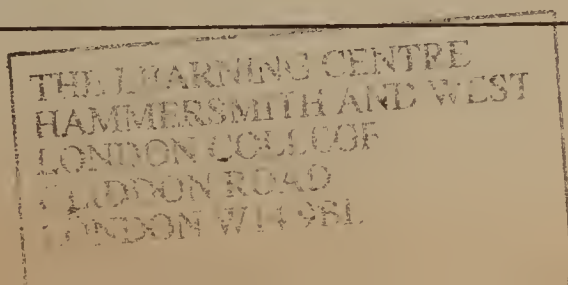 THE LEARNING CENTRE
HAMMERSMITH AND WEST
LONDON COLLEGE
GLIDDON ROAD
LONDON W14 9BL